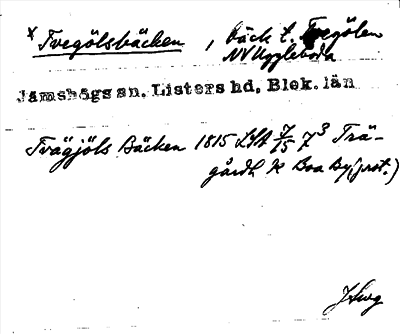 * Tvegölsbäcken, bäck t. Tvegölen
NV Uggleboda
Jämshögs sn. Listers hd, Blek. län
Trägjöls Bäcken 1815 LSA 7/15 7³ Trä-
gårdh K Boa By (prot.)